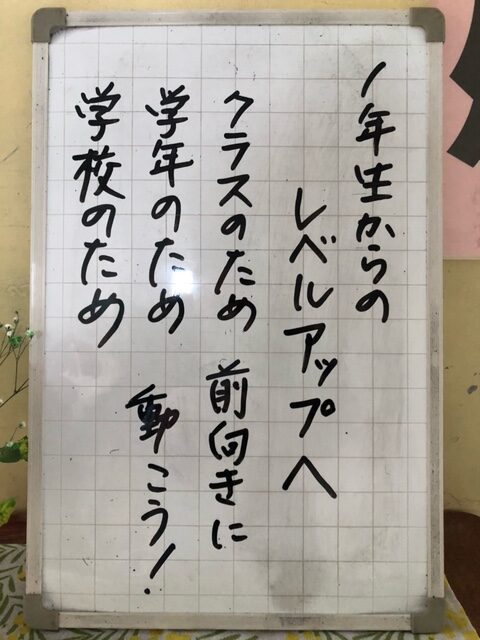 1年生からの
レベルアップへ
クラスのため
学年のため
学校のため
前向きに
動こう!